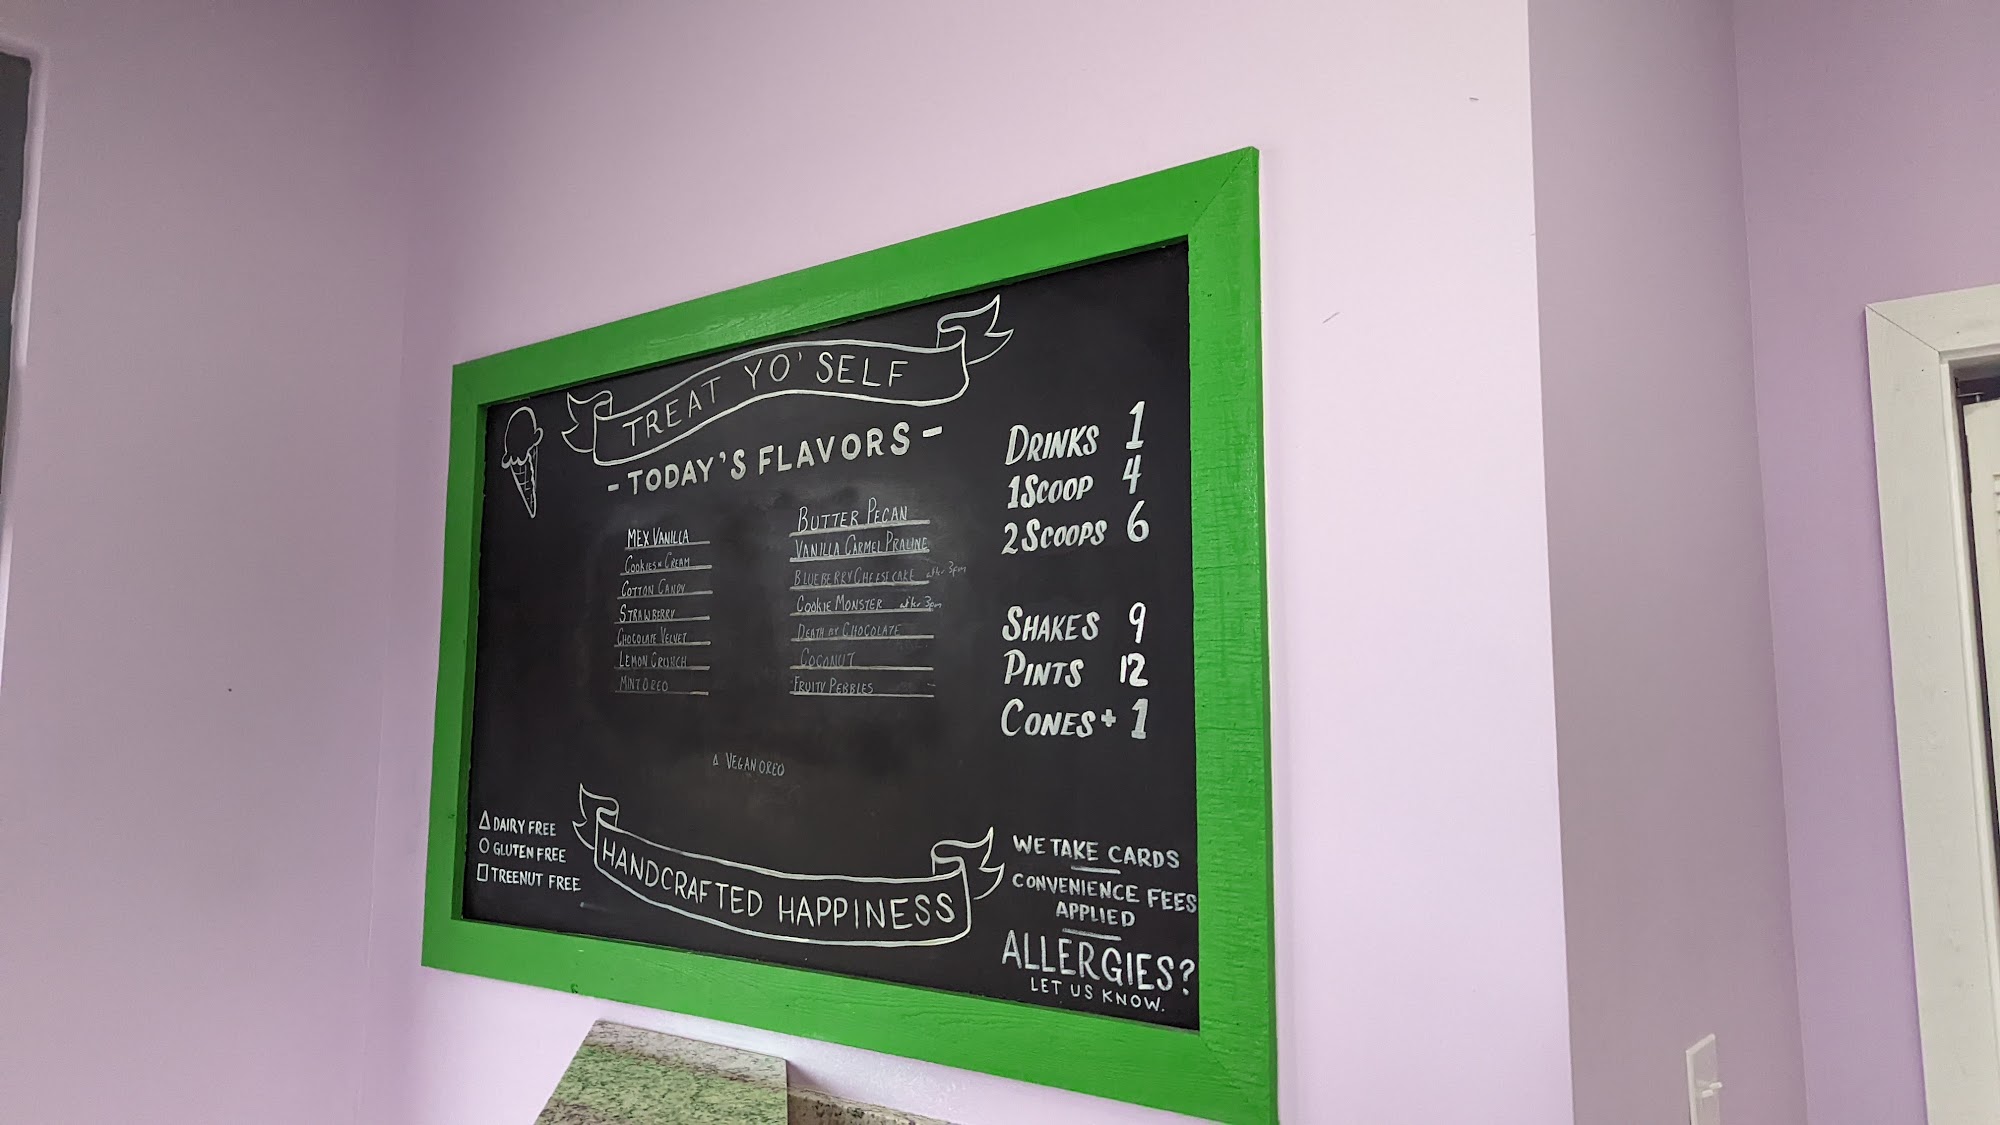 TREAT YO' SELF
- TODAY'S FLAVORS -
MEX VANILLA
COOKIES N CREAM
COTTON CANDY
STRAWBERRY
CHOCOLATE VELVET
LEMON CRUNCH
MINT OREO
BUTTER PECAN
VANILLA CARMEL PRALINE
BLUEBERRY CHEESECAKE after 3pm
COOKIE MONSTER after 3pm
DEATH BY CHOCOLATE
COCONUT
FRUITY PEBBLES
△ VEGAN OREO
DRINKS 1
1 SCOOP 4
2 SCOOPS 6
SHAKES 9
PINTS 12
CONES + 1
△ DAIRY FREE
○ GLUTEN FREE
□ TREENUT FREE
HANDCRAFTED HAPPINESS
WE TAKE CARDS
CONVENIENCE FEES
APPLIED
ALLERGIES?
LET US KNOW.